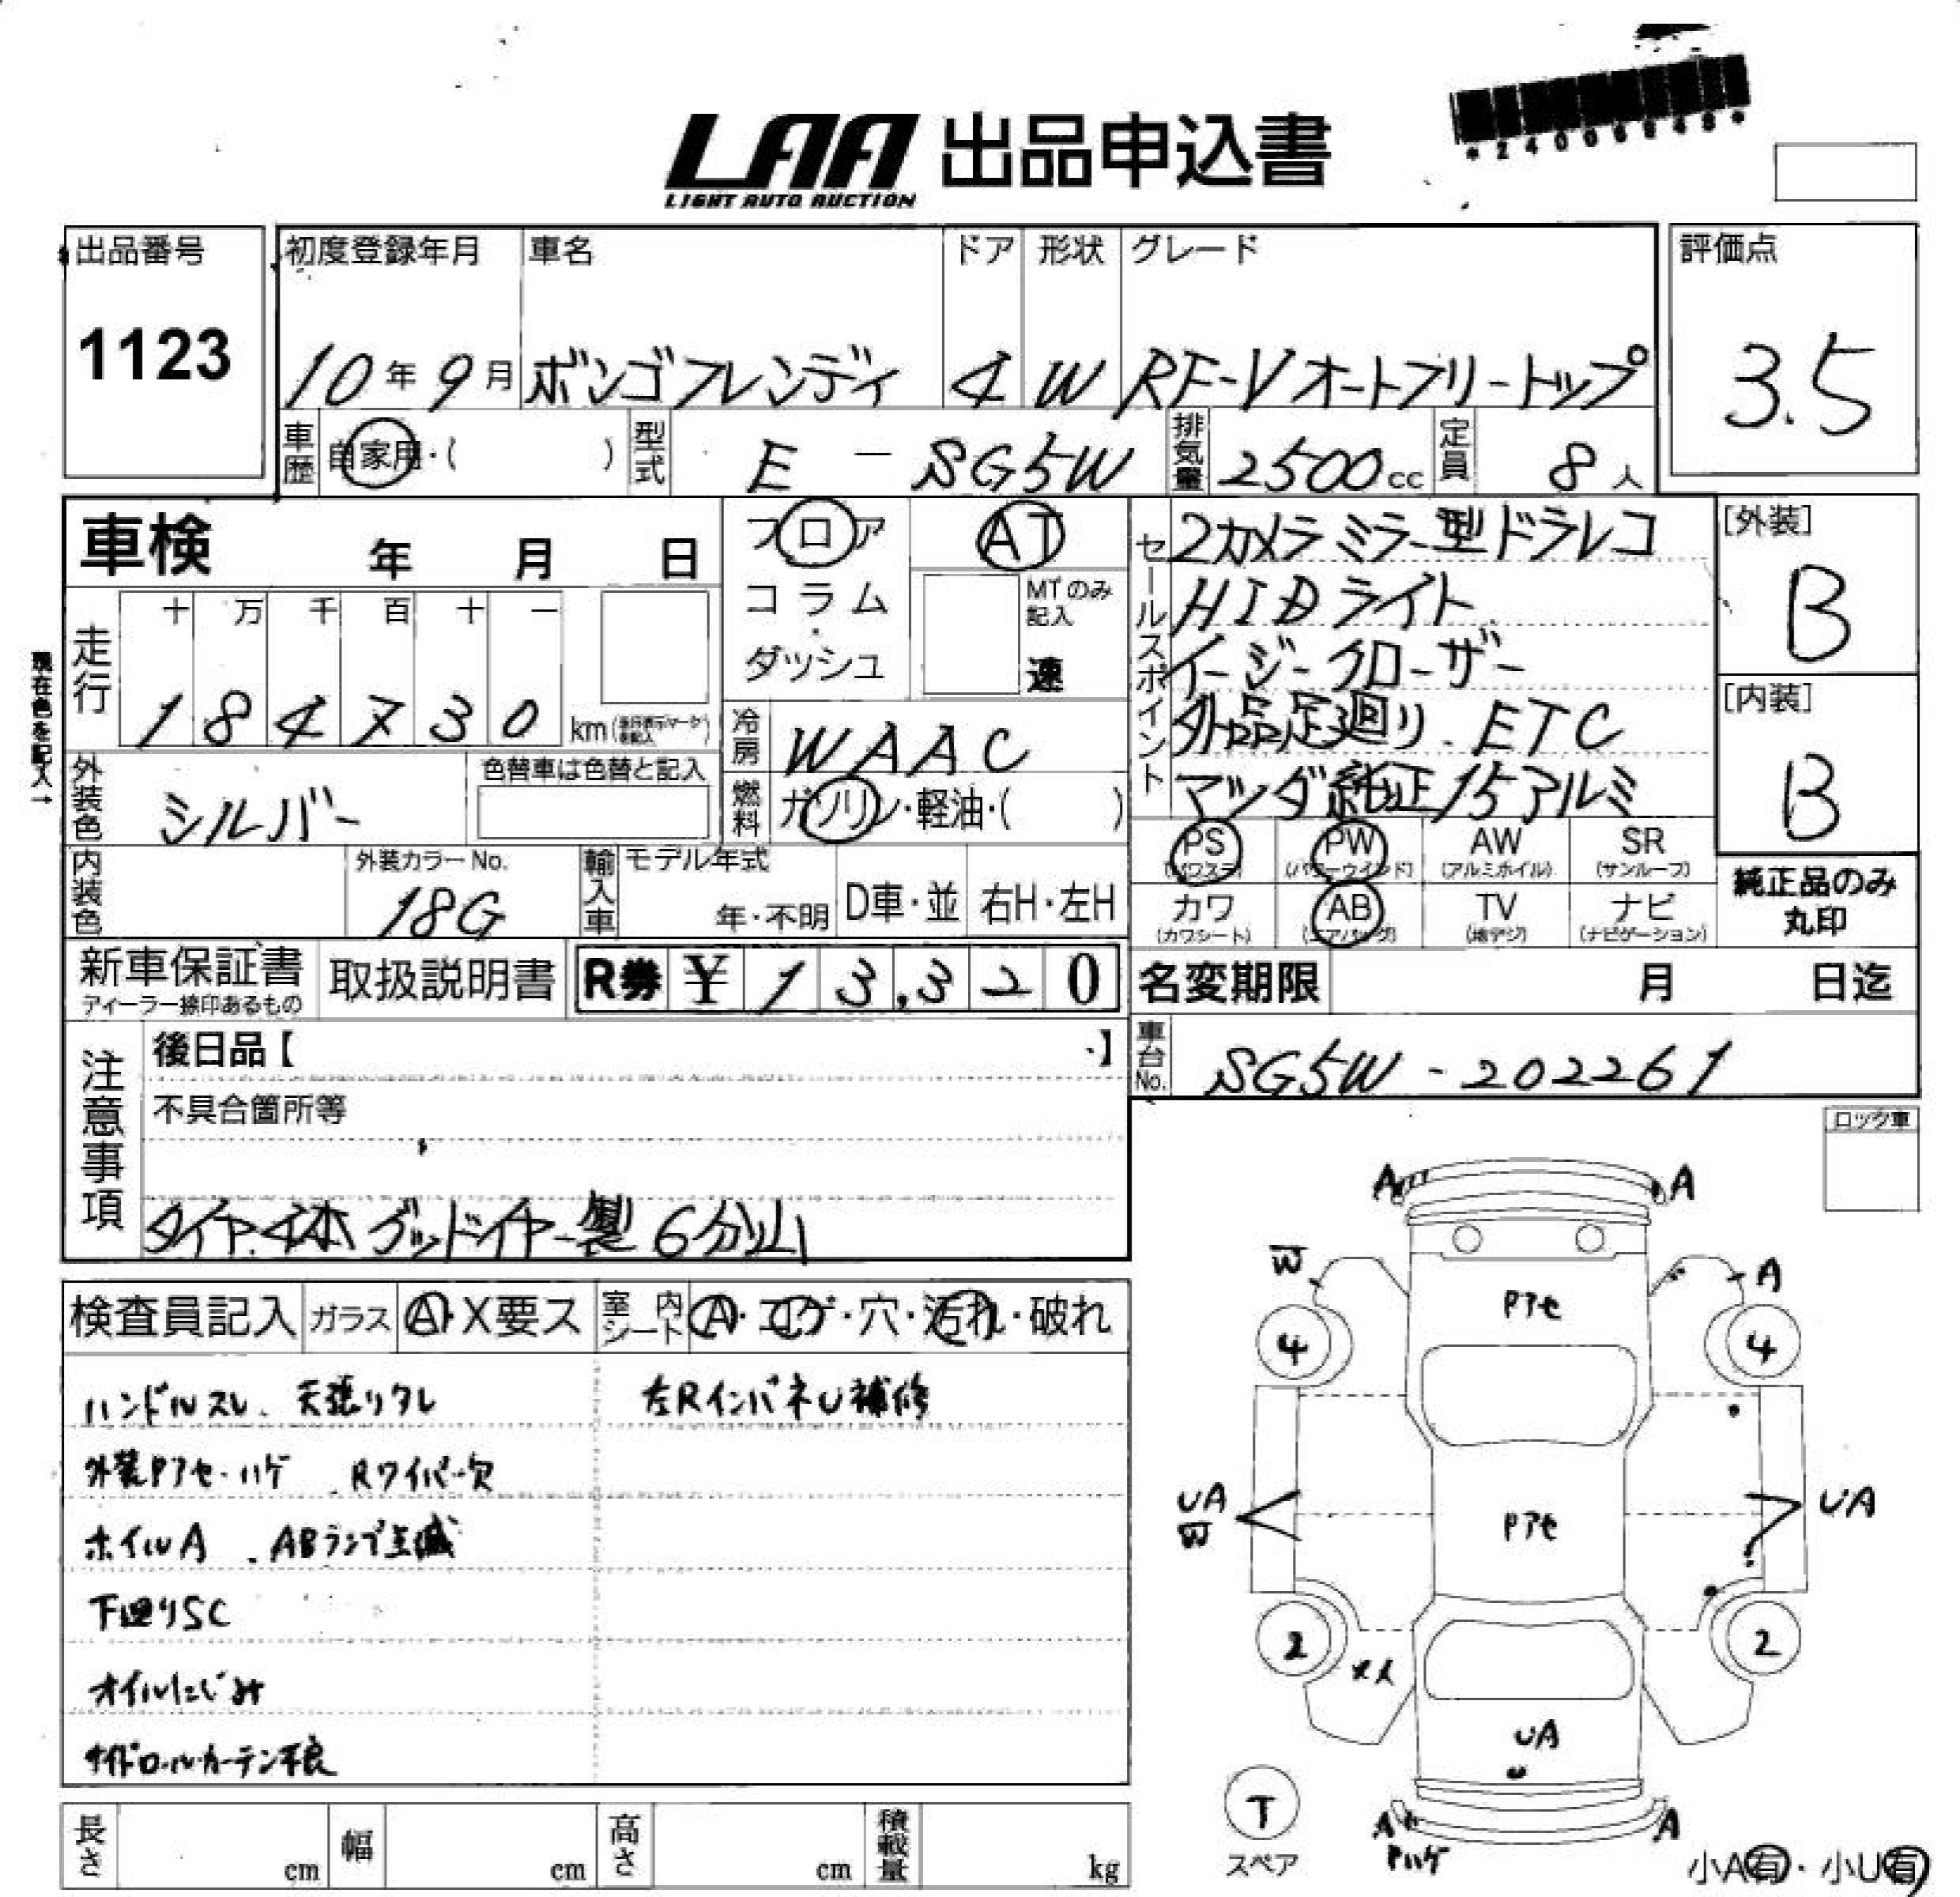 *24006848*
LAA 出品申込書
LIGHT AUTO AUCTION
出品番号
1123
初度登録年月
10年9月
車名
ボンゴフレンディ
ドア
4
形状
W
グレード
RF-Vオートフリートップ
評価点
3.5
車歴 自家用・( )
型式 E - SG5W
排気量 2500cc
定員 8人
車検 年 月 日
フロア
コラム
・
ダッシュ
AT
MTのみ
記入
速
セールスポイント
2カメラミラー型ドラレコ
HIDライト
イージークローザー
外品足廻り ETC
マツダ純正15アルミ
[外装]
B
[内装]
B
走行
十 万 千 百 十 一
1 8 4 7 3 0 km
現在色を記入→
冷房 WAAC
外装色 シルバー
色替車は色替と記入
燃料 ガソリン・軽油・( )
内装色
外装カラーNo.
18G
輸入車
モデル年式
年・不明
D車・並
右H・左H
PS
(パワステ)
PW
(パワーウインド)
AW
(アルミホイル)
SR
(サンルーフ)
カワ
(カワシート)
AB
(エアバッグ)
TV
(地デジ)
ナビ
(ナビゲーション)
純正品のみ
丸印
新車保証書
ディーラー捺印あるもの
取扱説明書
R券 ¥ 13,320
名変期限 月 日迄
車台No. SG5W-202261
注意事項
後日品【 】
不具合箇所等
タイヤ4本 グッドイヤー製 6分山
ロック車
検査員記入
ガラス A・X要ス
室内シート A・コゲ・穴・汚れ・破れ
ハンドルスレ、天張りタレ
左RインパネU補修
外装Pアセ・ハゲ、Rワイパー欠
ホイルA、ABランプ点滅
下回りSC
オイルにじみ
サイドロールカーテン不良
A A
W A
Pアセ
4 4
UA
W
Pアセ
UA
2 2
メ人
UA
U
T
スペア
A A
Pハゲ
小A有・小U有
長さ cm
幅 cm
高さ cm
積載量 kg